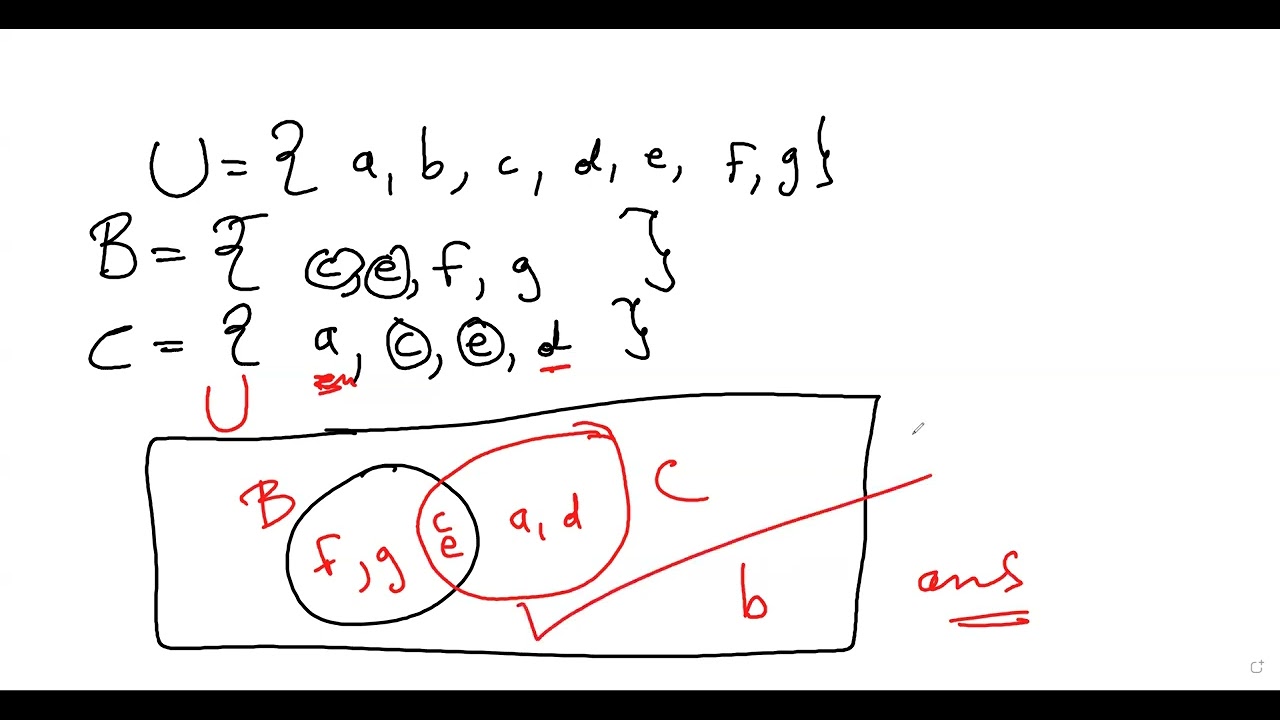 U = { a, b, c, d, e, f, g}
B = { c, e, f, g }
C = { a, c, e, d }
U
B
C
c
a, d
f, g
e
b
ans